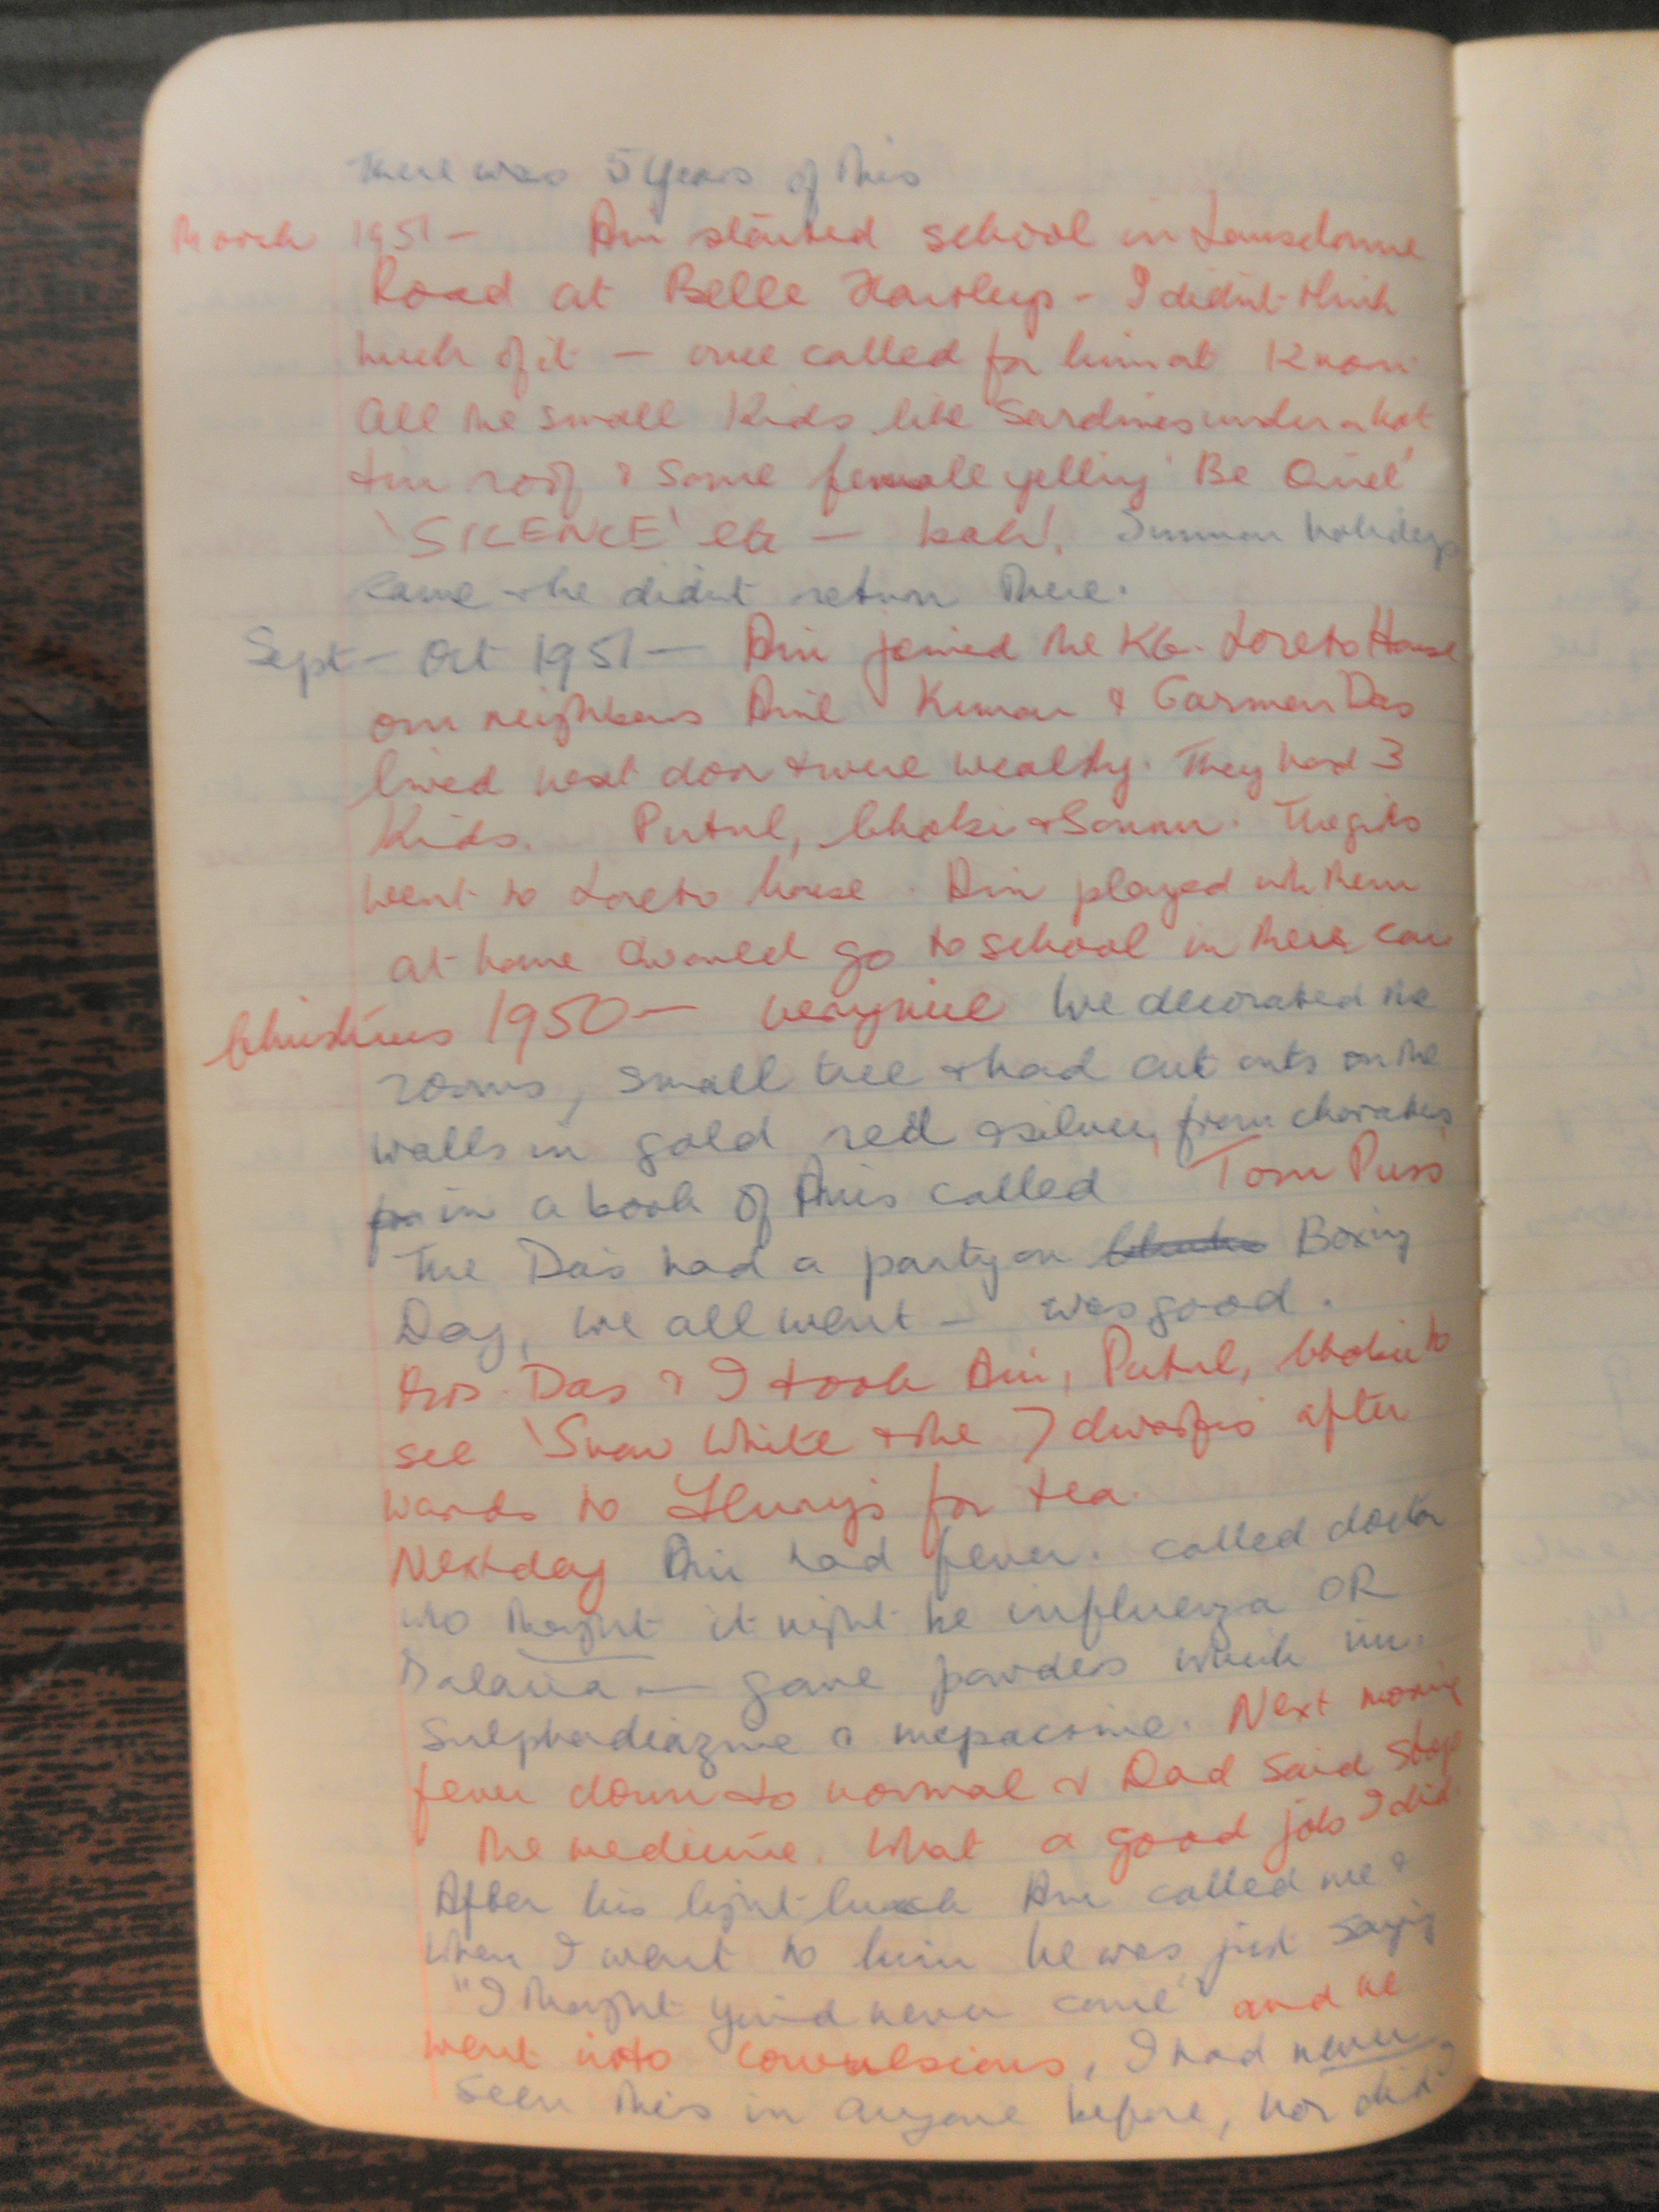 There was 5 years of this
March 1951 - Ani started school in Lansdowne
Road at Belle - I didn't think
much of it - once called for him at
All the small kids like Sardines under a hot
tin roof & some female yelling 'Be Quiet'
'SILENCE' etc - bah! Summer holidays
came & he didn't return there.
Sept - Oct 1951 - Ani joined the KG. Loreto House
our neighbours Anil Kumar & Carmen Das
lived next door & were wealthy. They had 3
kids. Putul, Choki & Sonnu. The girls
went to Loreto house. Ani played with them
at home & would go to school in their car
Christmas 1950 - very nice We decorated the
rooms, small tree & had cut outs on the
walls in gold red & silver, from
in a book of Anis called Tom Puss
The Das had a party on Boxing
Day, we all went - was good.
Mrs. Das & I took Ani, Putul, Choki to
see 'Snow White & the 7 dwarfs' after
wards to Flury's for tea.
Next day Ani had fever. called doctor
who thought it might be influenza OR
Malaria - gave powders which
Sulphadiazine & mepacrine. Next morning
fever down to normal & Dad said stop
the medicine. What a good job I did.
After his light lunch Ani called me &
when I went to him he was just saying
"I thought you'd never come" and he
went into convulsions, I had never
seen this in anyone before, nor did I